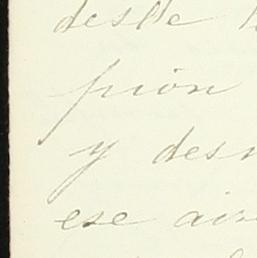 desde
pión
y des
ese air